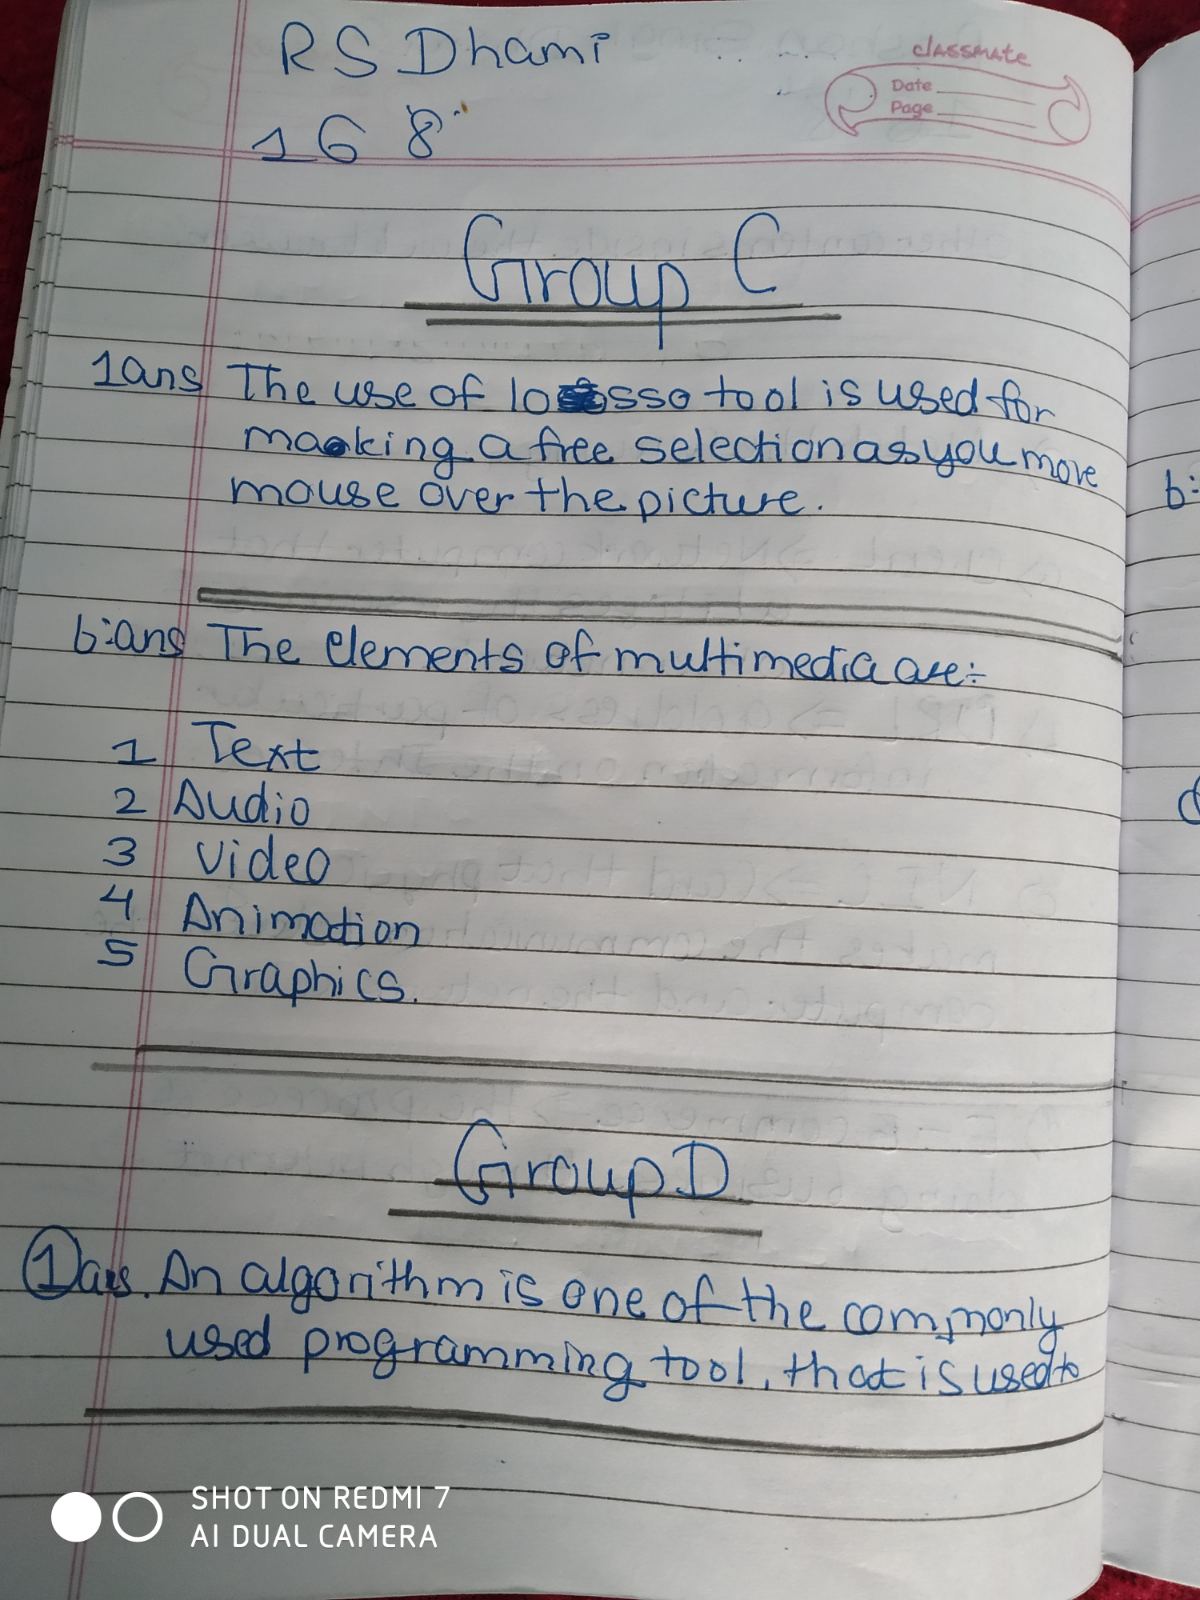 RS Dhami
168
classmate
Date
Page
Group C
1ans The use of losso tool is used for
making a free selection as you move
mouse over the picture.
b:ans The elements of multimedia are:-
1 Text
2 Audio
3 Video
4 Animation
5 Graphics.
Group D
1 ans. An algorithm is one of the commonly
used programming tool, that is used to
b:
SHOT ON REDMI 7
AI DUAL CAMERA